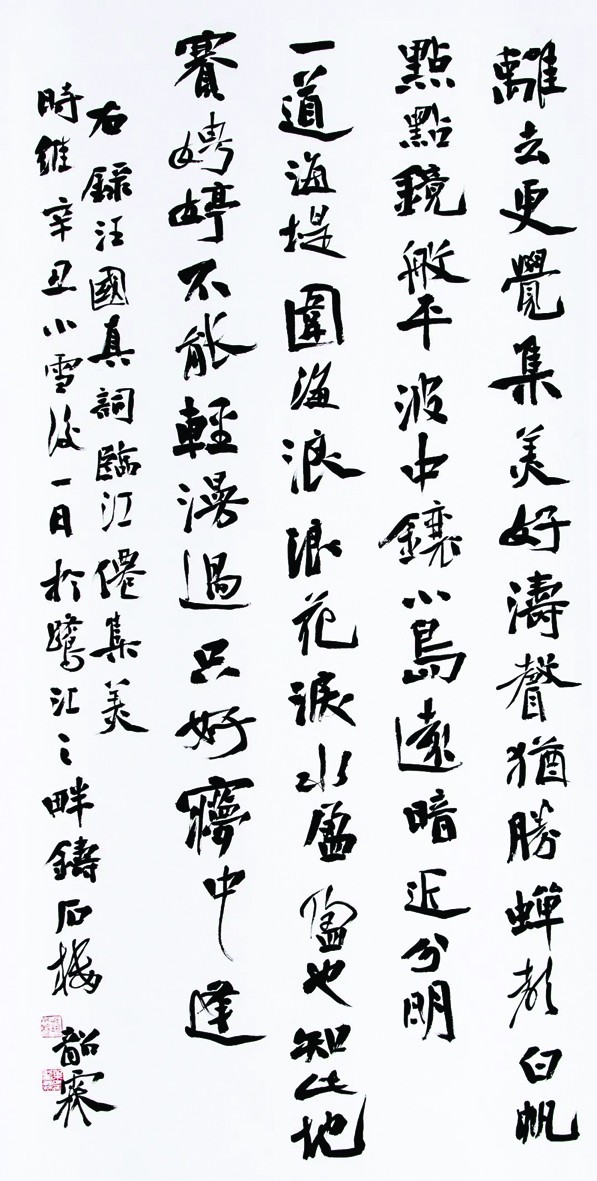 離去更覺集美好濤聲猶勝蟬白帆
點點鏡般平波中鑲小島遠暗近分明
一道海堤圍海浪浪花淚水盈盈也知此地
賽娉婷不能輕漫過只好夢中逢
右錄汪國真詞臨江僊集美
時維辛丑小雪後一日於鷺江之畔鑄石樓韶霖